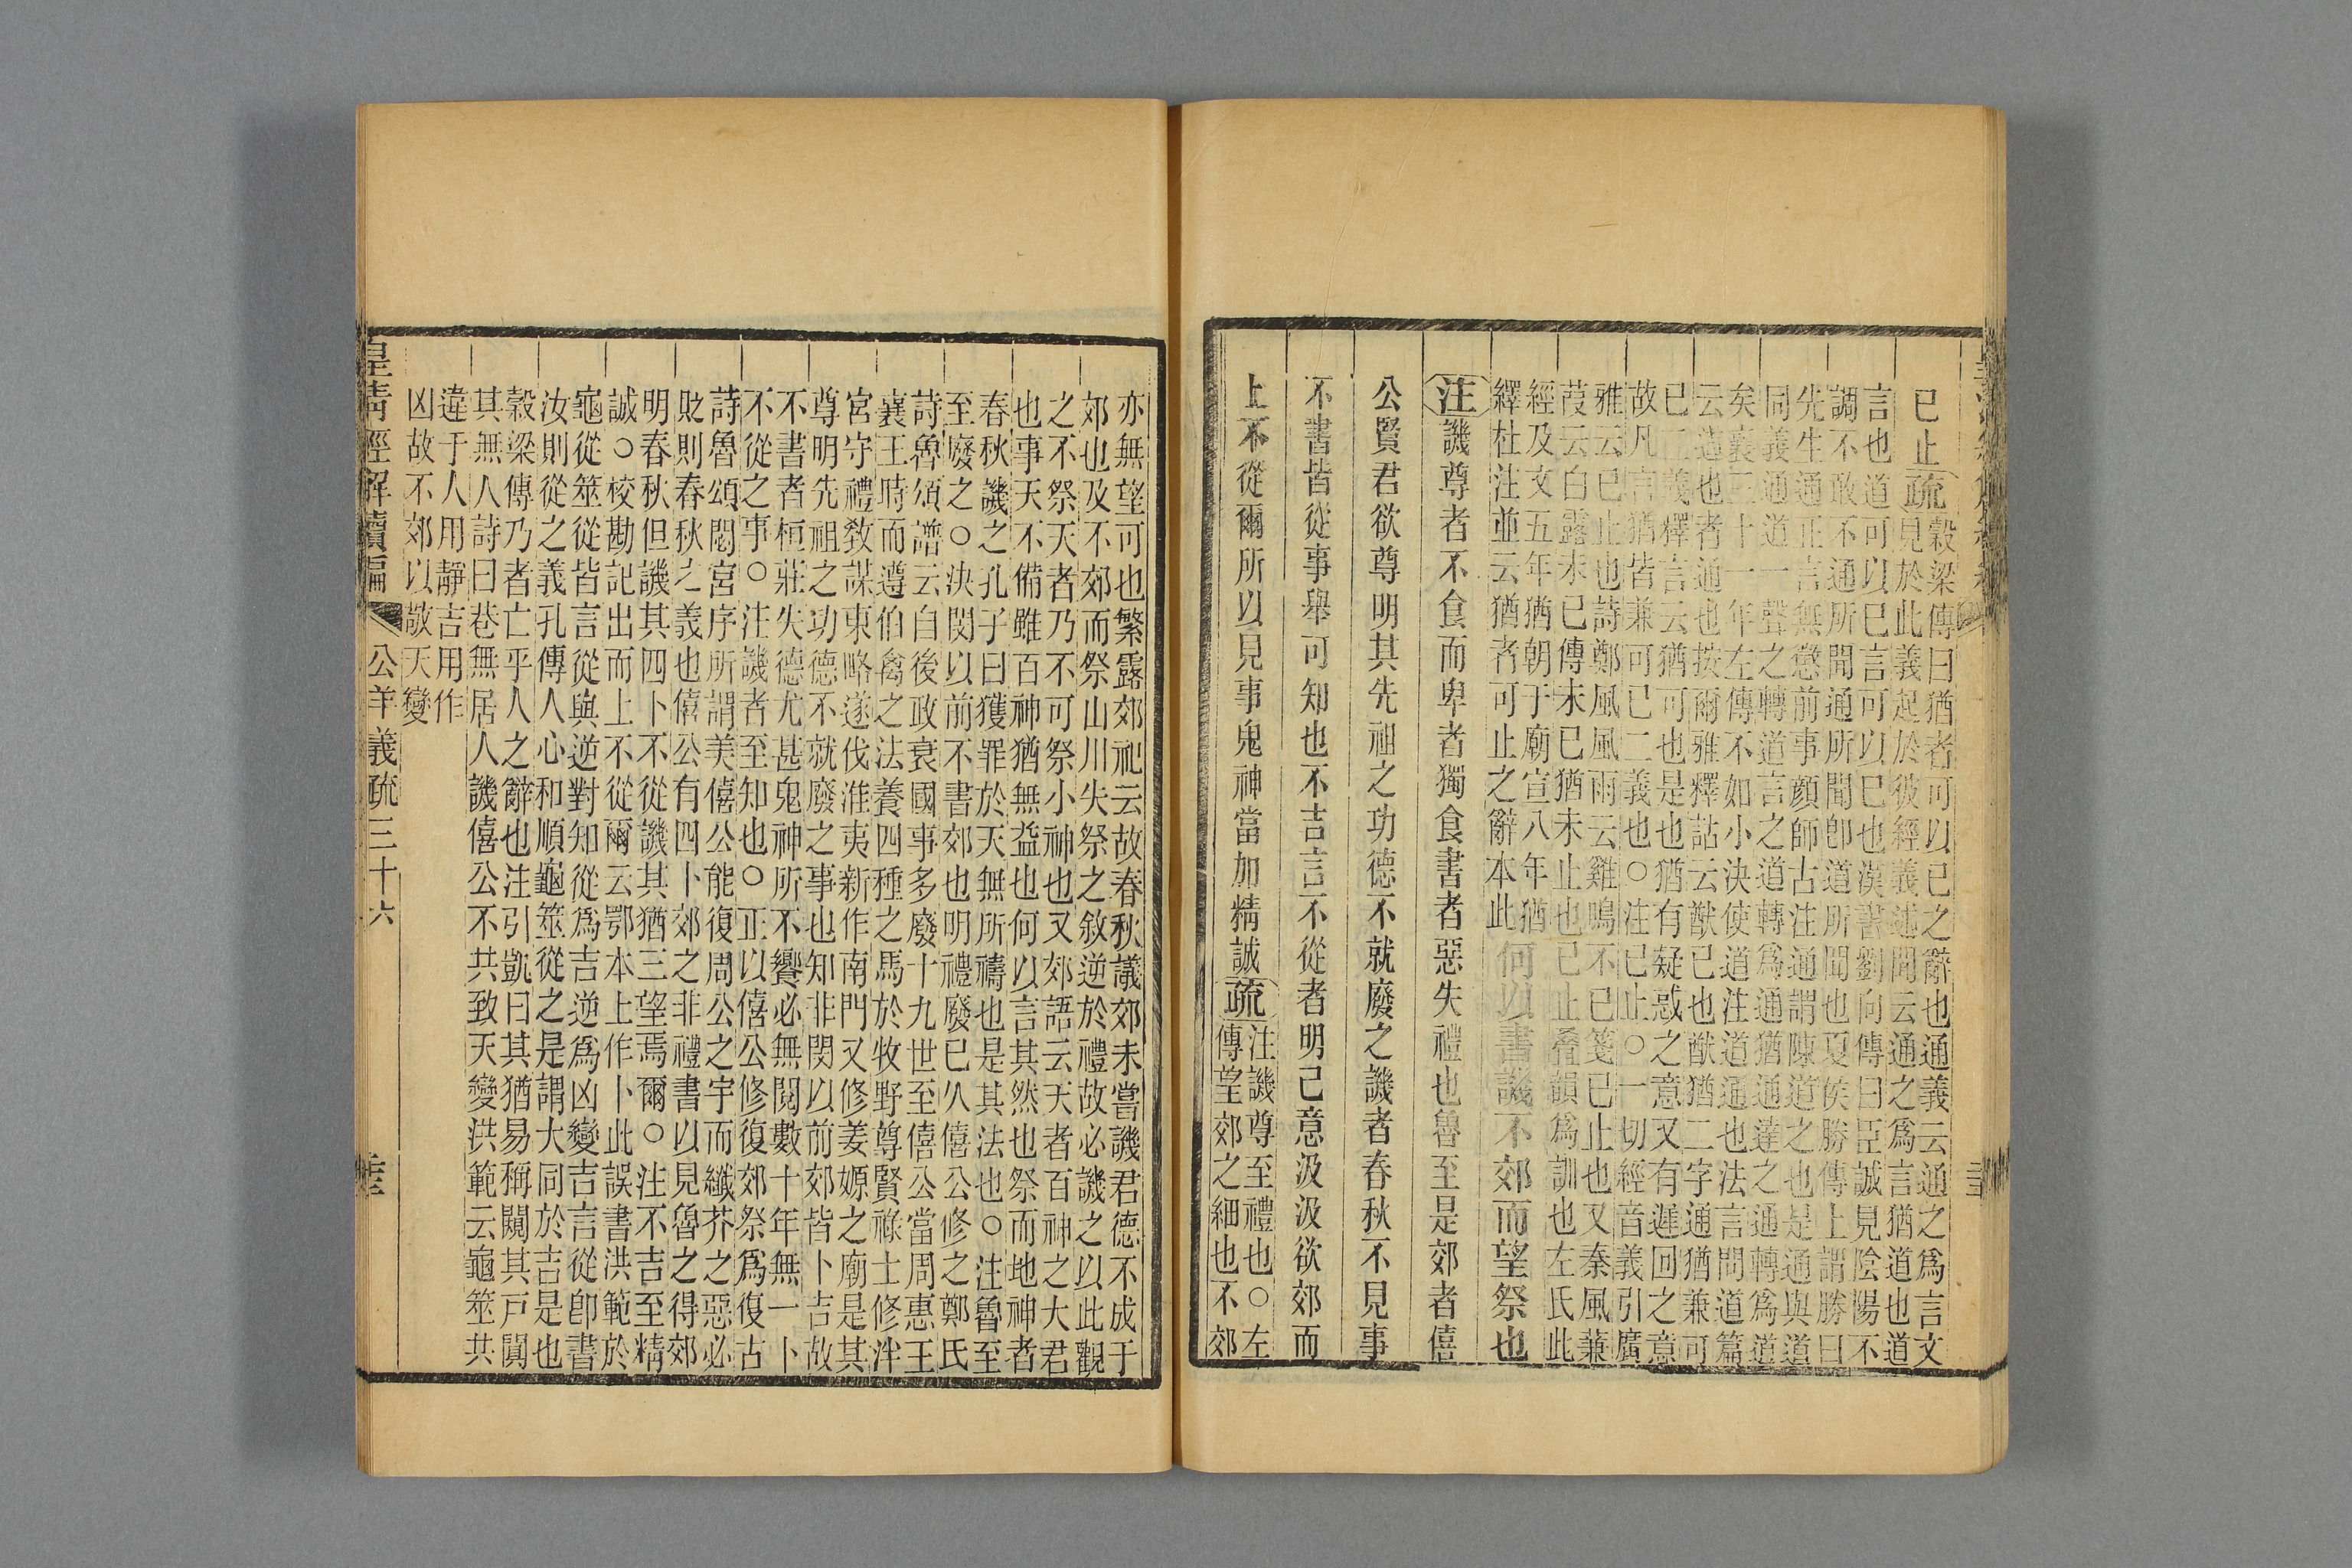 已止
疏
穀梁傳曰猶者可以已之辭也通義云通之爲言文
見於此義起於彼經義述聞云通之爲言猶道也道
言也道可以已言可以已也漢書劉向傳曰臣誠見陰陽不
調不敢不通所聞通所聞卽道所聞也夏侯勝傳上謂勝曰
先生通正言無懲前事顏師古注通謂陳道之也是通與道
同義通道一聲之轉道言之道轉爲通猶通達之通轉爲道
矣襄三十一年左傳不如小決使道注道通也法言問道篇
云道也者通也按爾雅釋詁云猷已也猷猶二字通猶兼可
已二義釋言云猶可也是也猶有疑惑之意又有遲回之意
故凡言猶皆兼可已二義也○注已止○一切經音義引廣
雅云已止也詩鄭風風雨云雞鳴不已箋已止也又秦風蒹
葭云白露未已傳未已猶未止也已止疊韻爲訓也左氏此
經及文五年猶朝于廟宣八年猶
繹杜注並云猶者可止之辭本此
何以書譏不郊而望祭也
注譏尊者不食而卑者獨食書者惡失禮也魯至是郊者僖
公賢君欲尊明其先祖之功德不就廢之譏者春秋不見事
不書皆從事舉可知也不吉言不從者明己意汲汲欲郊而
上不從爾所以見事鬼神當加精誠
疏
注譏尊至禮也○左
傳望郊之細也不郊
亦無望可也繁露郊祀云故春秋議郊未嘗譏君德不成于
郊也及不郊而祭山川失祭之敘逆於禮故必譏之以此觀
之不祭天者乃不可祭小神也又郊語云天者百神之大君
也事天不備雖百神猶無益也何以言其然也祭而地神者
春秋譏之孔子曰獲罪於天無所禱也是其法也○注魯至
至廢之○決閔以前不書郊也明禮廢已久僖公修之鄭氏
詩魯頌譜云自後政衰國事多廢十九世至僖公當周惠王
襄王時而遵伯禽之法養四種之馬於牧野尊賢祿士修泮
宮守禮敎謀東略遂伐淮夷新作南門又修姜嫄之廟是其
尊明先祖之功德不就廢之事也知非閔以前郊皆卜吉故
不書者桓莊失德尤甚鬼神所不饗必無閱數十年無一卜
不從之事○注譏者至知也○正以僖公修復郊祭爲復古
詩魯頌閟宮序所謂美僖公能復周公之宇而纖芥之惡必
貶則春秋之義也僖公有四卜郊之非禮書以見魯之得郊
明春秋但譏其四卜不從譏其猶三望焉爾○注不吉至精
誠○校勘記出而上不從爾云鄂本上作卜此誤書洪範於
龜從筮從皆言從與逆對知從爲吉逆爲凶變吉言從卽書
汝則從之義孔傳人心和順龜筮從之是謂大同於吉是也
穀梁傳乃者亡乎人之辭也注引凱曰其猶易稱闚其戶闃
其無人詩曰巷無居人譏僖公不共致天變洪範云龜筮共
違于人用靜吉用作
凶故不郊以敬天變
皇清經解續編
公羊義疏三十六